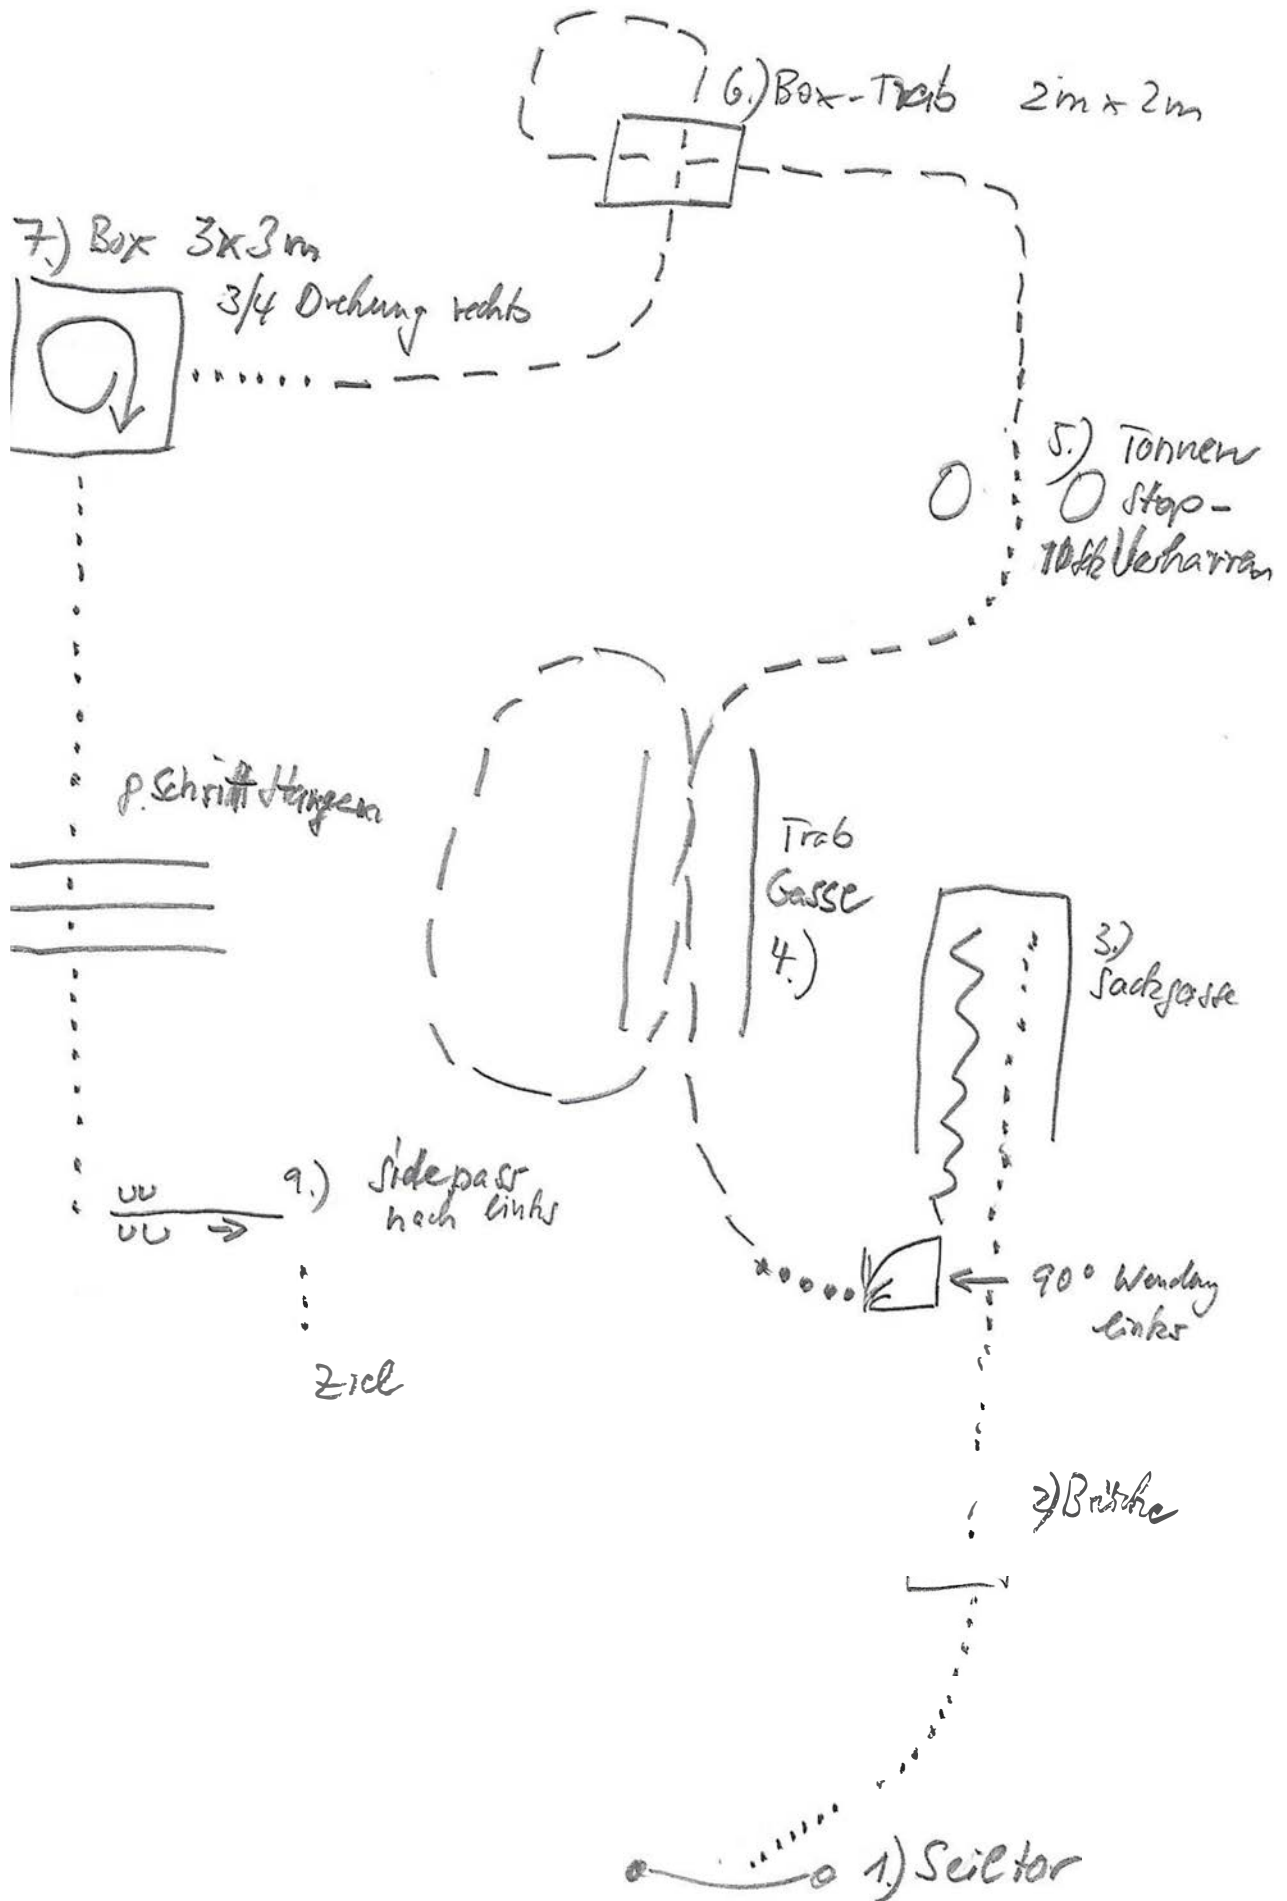 6.) Box-Trab 2m x 2m
7.) Box 3x3m
3/4 Drehung rechts
5.) Tonnen
Stop-
Verharren
8. Schritt Stangen
Trab
Gasse
4.)
3.)
Sackgasse
9.) Sidepass
nach links
90° Wendung
links
Ziel
2) Brücke
1.) Seiltor